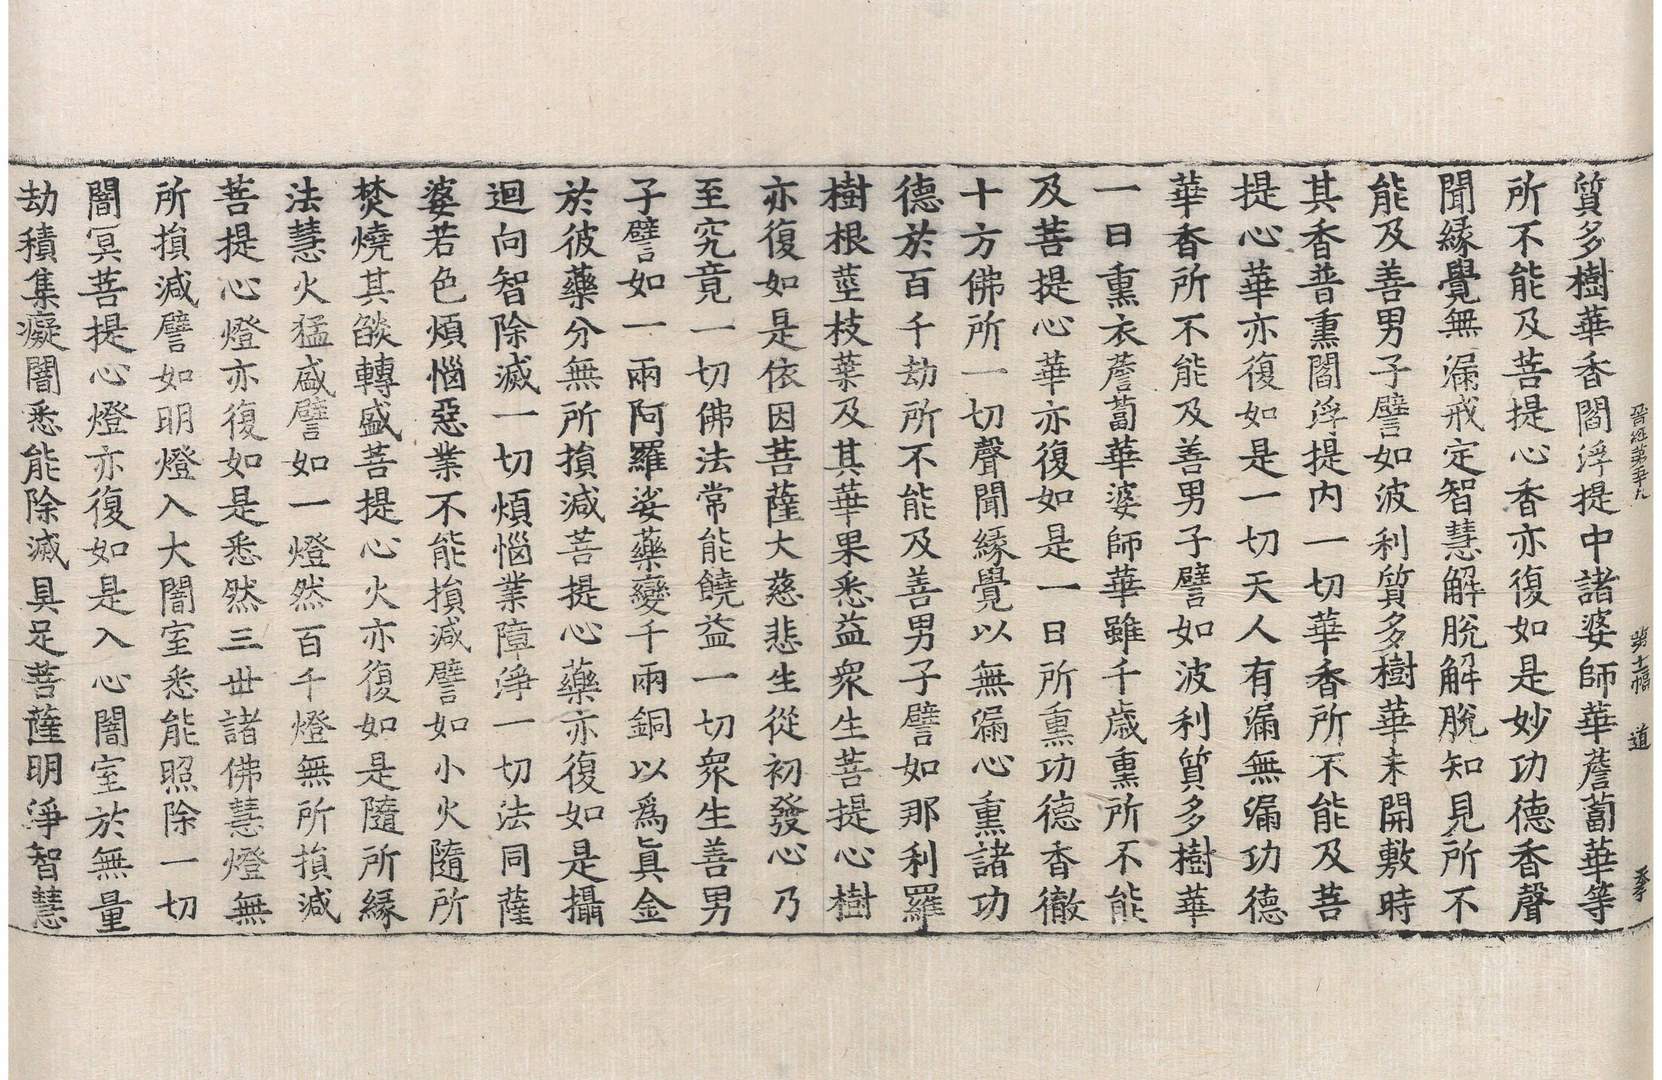 晉經第五十九 道
質多樹華香閻浮提中諸婆師華薝蔔華等
所不能及菩提心香亦復如是妙功德香聲
聞緣覺無漏戒定智慧解脫解脫知見所不
能及善男子譬如波利質多樹華未開敷時
其香普熏閻浮提內一切華香所不能及菩
提心華亦復如是一切天人有漏無漏功德
華香所不能及善男子譬如波利質多樹華
一日熏衣薝蔔華婆師華雖千歲熏所不能
及菩提心華亦復如是一日所熏功德香徹
十方佛所一切聲聞緣覺以無漏心熏諸功
德於百千劫所不能及善男子譬如那利羅
樹根莖枝葉及其華果悉益衆生菩提心樹
亦復如是依因菩薩大慈悲生從初發心乃
至究竟一切佛法常能饒益一切衆生善男
子譬如一兩阿羅娑藥變千兩銅以爲眞金
於彼藥分無所損減菩提心藥亦復如是攝
迴向智除滅一切煩惱業障淨一切法同薩
婆若色煩惱惡業不能損減譬如小火隨所
焚燒其燄轉盛菩提心火亦復如是隨所緣
法慧火猛盛譬如一燈然百千燈無所損減
菩提心燈亦復如是悉然三世諸佛慧燈無
所損減譬如明燈入大闇室悉能照除一切
闇冥菩提心燈亦復如是入心闇室於無量
劫積集癡闇悉能除滅具足菩薩明淨智慧